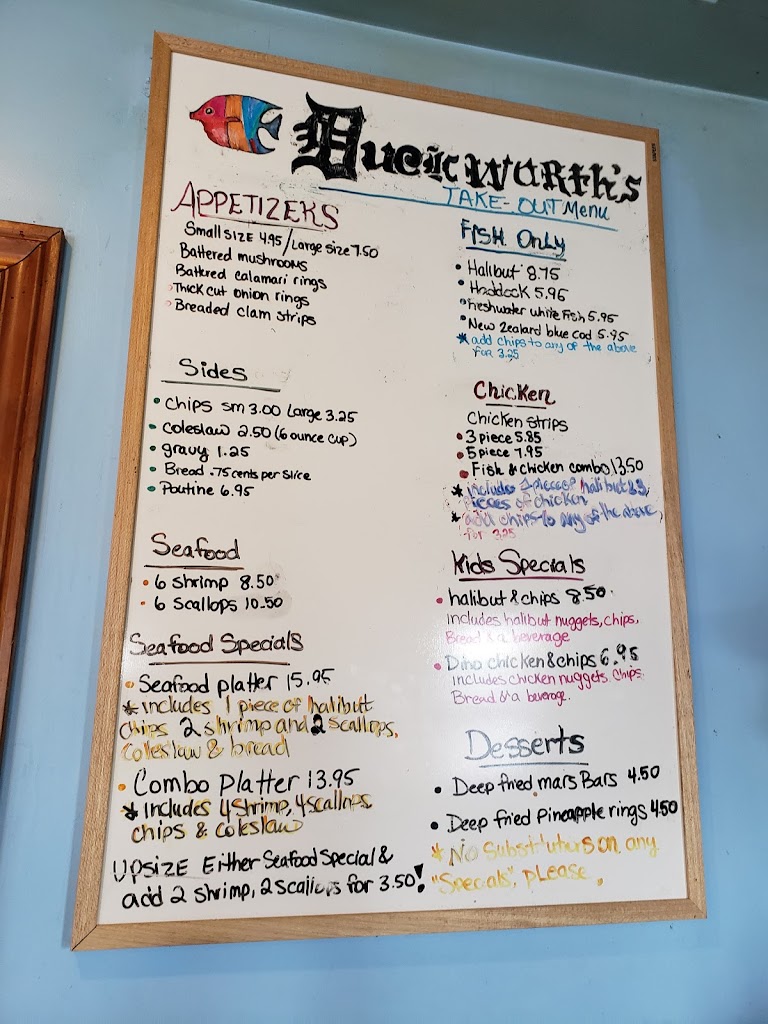 Duckwurth's
TAKE-OUT Menu
APPETIZERS
Small SIZE 4.95/Large size 7.50
Battered mushrooms
Battered calamari rings
Thick cut onion rings
Breaded clam strips
Sides
Chips sm 3.00 Large 3.25
Coleslaw 2.50 (6 ounce cup)
gravy 1.25
Bread .75 cents per slice
Poutine 6.95
Seafood
6 shrimp 8.50
6 Scallops 10.50
Seafood Specials
Seafood platter 15.95
* includes 1 piece of halibut
chips 2 shrimp and 2 scallops,
coleslaw & bread
Combo Platter 13.95
* Includes 4 Shrimp, 4 scallops
chips & coleslaw
UPSIZE Either Seafood Special &
add 2 shrimp, 2 scallops for 3.50!
Fish Only
Halibut 8.75
Haddock 5.95
Freshwater white Fish 5.95
New Zealand blue cod 5.95
* add chips to any of the above
for 3.25
Chicken
Chicken strips
3 piece 5.85
5 piece 7.95
Fish & chicken combo 13.50
* includes 1 piece of halibut & 3
pieces of chicken
* add chips to any of the above,
for 3.25
Kids Specials
halibut & chips 8.50
includes halibut nuggets, chips,
Bread & a beverage
Dino chicken & chips 6.95
Includes chicken nuggets, chips
Bread & a beverage.
Desserts
Deep fried mars Bars 4.50
Deep fried Pineapple rings 4.50
* No Substituters on any
"Specials", please.